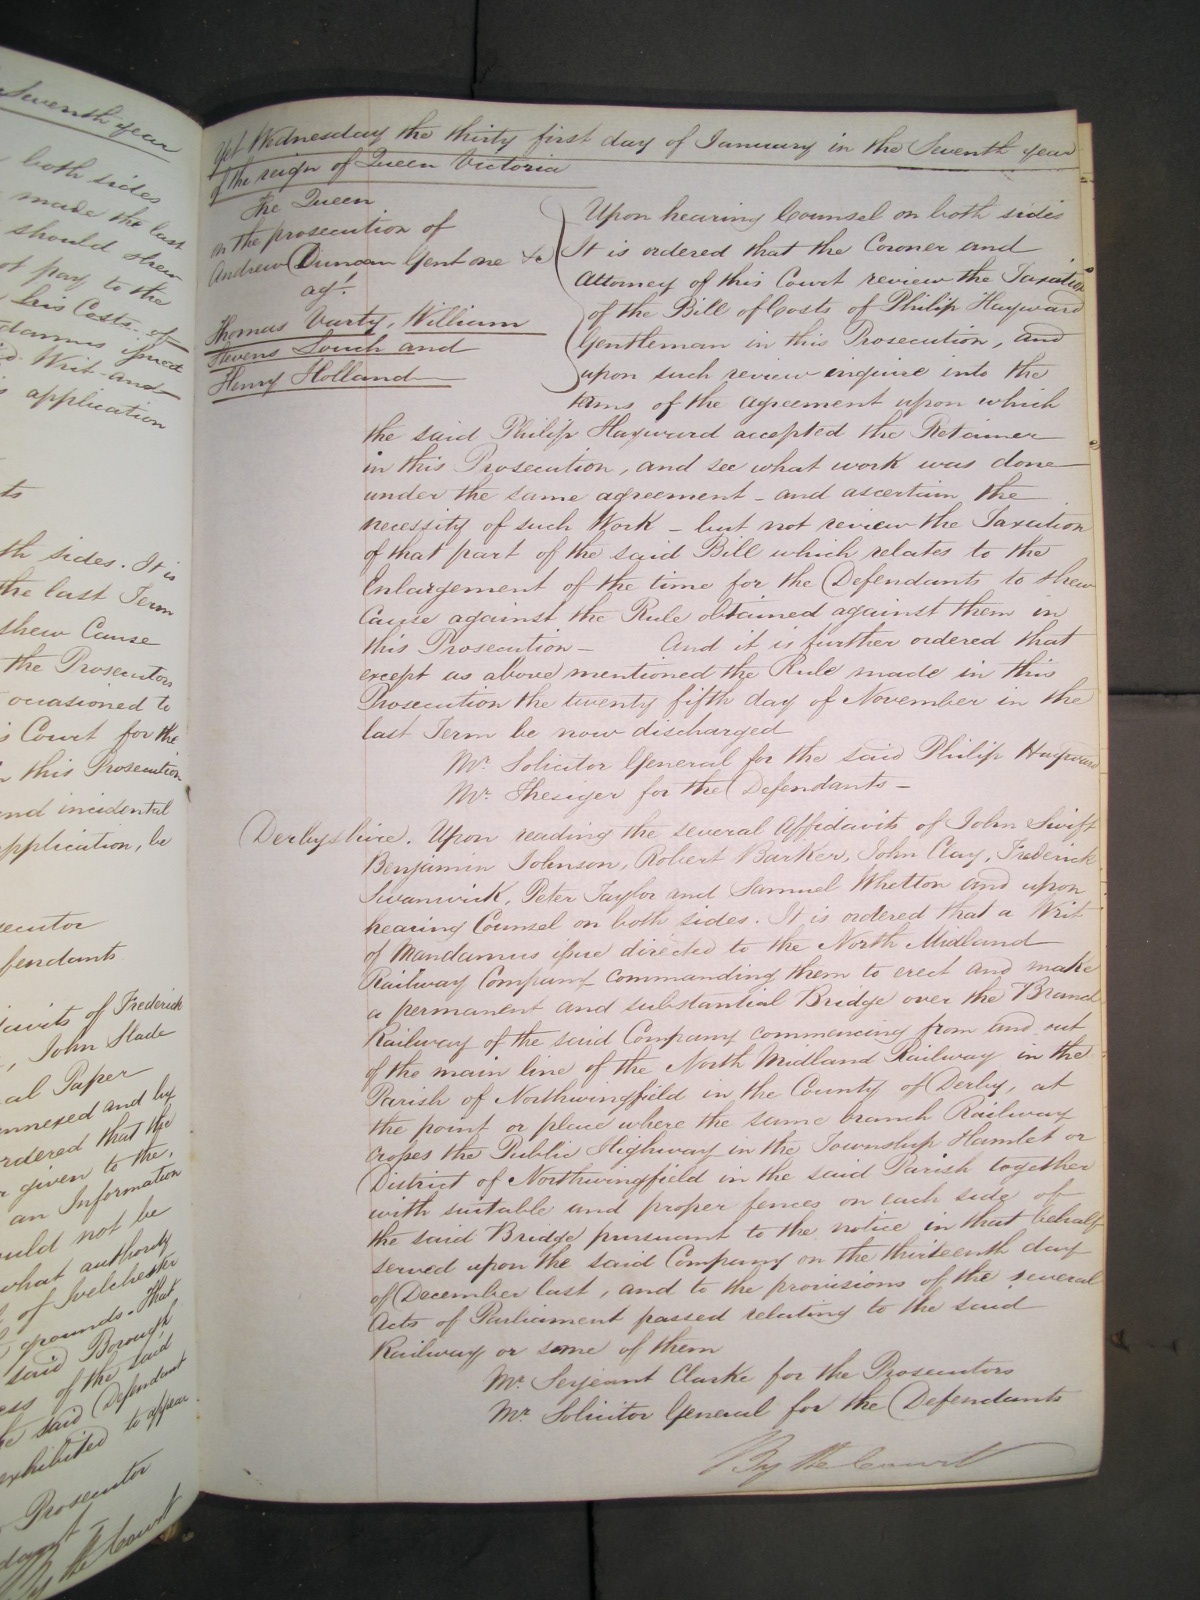 Seventh year
both sides
made the last
should shew
not pay to the
his Costs of
damus issued
Writ and
application
ts
th sides. It is
the last Term
shew Cause
the Prosecutors
occasioned to
Court for the
this Prosecution
and incidental
application, be
secutor
fendants
davits of Frederick
, John Slade
al Paper
annexed and by
rdered that the
given to the,
an Information
ould not be
what authority
of Ivelchester
grounds. That
said Borough
ess of the said
he said Defendant
exhibited to appear
Prosecutor
dant
By the Court
Yet Wednesday the thirty first day of January in the Seventh year
of the reign of Queen Victoria
The Queen
on the prosecution of
Andrew Duncan Gent one &c
agt.
Thomas Varty, William
Stevens Louch and
Henry Holland
Upon hearing Counsel on both sides
It is ordered that the Coroner and
Attorney of this Court review the Taxation
of the Bill of Costs of Philip Hayward
Gentleman in this Prosecution, and
upon such review enquire into the
terms of the agreement upon which
the said Philip Hayward accepted the Retainer
in this Prosecution, and see what work was done
under the same agreement - and ascertain the
necessity of such Work - but not review the Taxation
of that part of the said Bill which relates to the
Enlargement of the time for the Defendants to shew
Cause against the Rule obtained against them in
this Prosecution - And it is further ordered that
except as above mentioned the Rule made in this
Prosecution the twenty fifth day of November in the
last Term be now discharged
Mr. Solicitor General for the said Philip Hayward
Mr. Thesiger for the Defendants -
Derbyshire. Upon reading the several Affidavits of John Swift
Benjamin Johnson, Robert Barker, John Clay, Frederick
Swanwick, Peter Taylor and Samuel Whetton and upon
hearing Counsel on both sides. It is ordered that a Writ
of Mandamus issue directed to the North Midland
Railway Company commanding them to erect and make
a permanent and substantial Bridge over the Branch
Railway of the said Company commencing from and out
of the main line of the North Midland Railway in the
Parish of Northwingfield in the County of Derby, at
the point or place where the same branch Railway
crosses the Public Highway in the Township Hamlet or
District of Northwingfield in the said Parish together
with suitable and proper fences on each side of
the said Bridge pursuant to the notice in that behalf
served upon the said Company on the thirteenth day
of December last, and to the provisions of the several
Acts of Parliament passed relating to the said
Railway or some of them
Mr. Serjeant Clarke for the Prosecutors
Mr. Solicitor General for the Defendants
By the Court